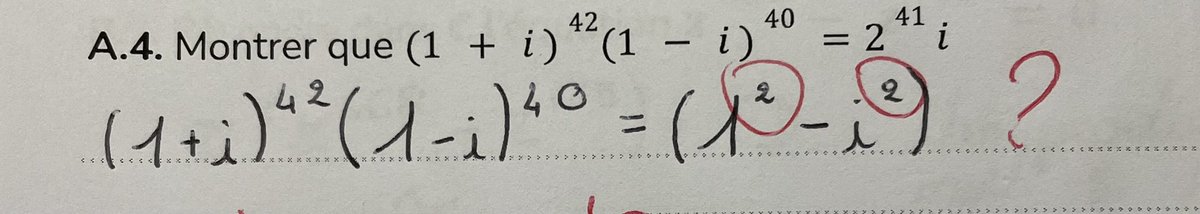 A.4. Montrer que (1 + i)⁴²(1 − i)⁴⁰ = 2⁴¹ i
(1+i)⁴²(1-i)⁴⁰ = (1²-i²) ?